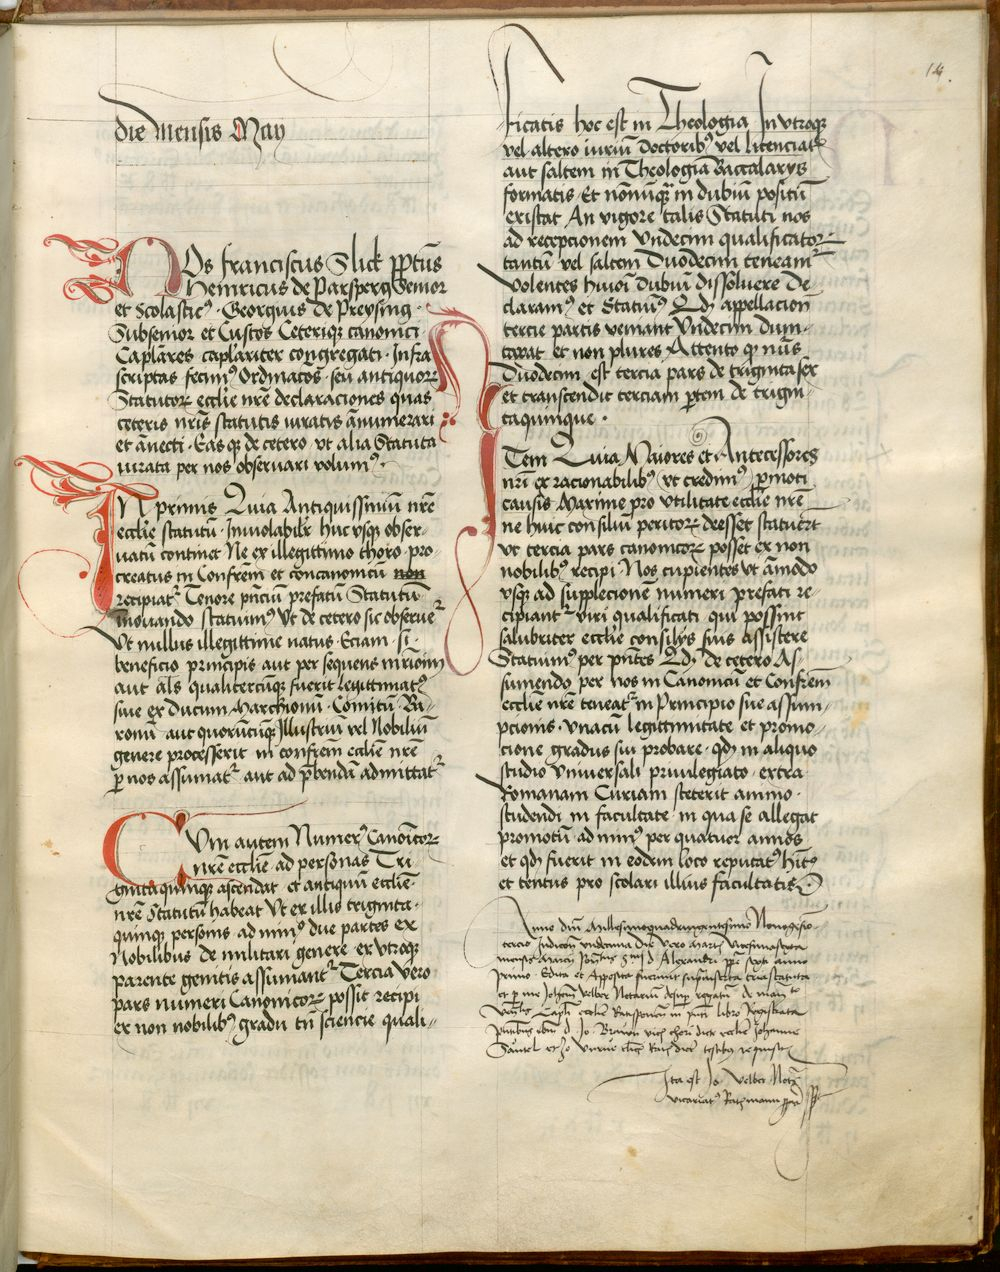 die Mensis May
NOs franciscus Slick pp̄tus
Heinricus de Parsperg Senior
et Scolasticꝰ · Georgius de Preysing ·
Subsenior et Custos Ceteriqꝫ canonici ·
Caplāres caplariter congregati · Infra
scriptas fecimꝰ Ordinatōēs · seu antiquorꝝ
Statutorꝝ eccl̄ie nr̄e declaraciones quas
ceteris nr̄is statutis iuratis ānumerari
et ānecti · Eas qꝫ de cetero vt alia Statuta
iurata per nos obseruari volumꝰ ·
IN primis Quia Antiquissimū nr̄e
eccl̄ie statutū · Inuiolabilr̄ huc vsqꝫ obser-
uatū continet Ne ex illegittimo thoro pro-
creatus in Confrēm et concanonicū non
recipiatʳ Tenore pn̄ciū prefatū Statutū
innouando statuimꝰ Vt de cetero sic obserueʳ
Vt nullus illegittime natus · Eciam · si ·
beneficio principis aut per sequens mr̄ioniū
aut al̄s qualitercūqꝫ fuerit legittimatꝰ
siue ex Ducum Marchionū · Comitū · Ba-
ronū aut quorūcūqꝫ Illustriū vel Nobiliū
genere processerit in confrēm eccl̄ie nr̄e
ꝑ nos assumatʳ aut ad p̄bendā admittatʳ
CVm autem Numerꝰ Canōicorꝝ
nr̄e eccl̄ie ad personas Tri
gintaquinqꝫ ascendat et antiquū eccl̄ie
nr̄e Statutū habeat Vt ex illis triginta-
quinqꝫ personis ad minꝰ due partes ex
Nobilibus de militari genere ex vtroqꝫ
parente genitis assumantʳ Tercia vero
pars numeri Canonicorꝝ possit recipi
ex non nobilibꝰ gradu tn̄ sciencie quali-
ficatis hoc est in Theologia In vtroqꝫ
vel altero iuriū Doctoribꝰ vel licenciatꝭ
aut saltem in Theologia Baccalarijs
formatis Et nōnūqꝫ in dubiū positū
existat An vigore talis Statuti nos
ad recepcionem Vndecim qualificatorꝝ
tantū vel saltem Duodecim teneamʳ
Volentes huiōi dubiū dissoluere De-
claramꝰ et Statuimꝰ Qd̄ appellacion
tercie partis veniant Vndecim dum-
taxat et non plures Attento qꝫ nūs
Duodecim est tercia pars de trigintasex
et transcendit terciam ꝑtem de trigin-
taquinque ·
ITem Quia Maiores et Antecessores
nr̄i ex racionabilibꝰ vt credimꝰ ꝑmoti
causis Maxime pro vtilitate eccl̄ie nr̄e
ne huic consiliū peritorꝝ deesset statuerūt
vt tercia pars canonicorꝝ posset ex non
nobilibꝰ recipi Nos cupientes vt āmodo
vsqꝫ ad supplecionē numeri prefati re-
cipiantʳ viri qualificati qui possint
salubriter eccl̄ie consilijs suis assistere
Statuimꝰ per pn̄tes Qd̄ de cetero As-
sumendo per nos in Canonicū et Confrēm
eccl̄ie nr̄e teneatʳ in Principio sue assum-
pcionis · Vnacū legittimitate et promo-
cione gradus sui probare · qd̄ in aliquo
studio vniuersali priuilegiato · extra
Romanam Curiam steterit animo ·
studendi in facultate in qua se allegat
promotū ad minꝰ per quatuor annos
et qd̄ fuerit in eodem loco reputatꝰ hitꝰ
et tentus pro scolari illius facultatis
Anno dn̄i Millesimoquadringentesimo Nonagesio-
tercio Indicōn vndecima die vero Martis Vicesimasexta
mensis Marcij Pontificatus d Alexandri pp̄e sexti anno
primo · Edita et Apposita fuerunt suprascripta tria statuta
et per me Johannem Velber Notarium
in pn̄ti libro Registrata
Ita est Jo Velber Notʳ